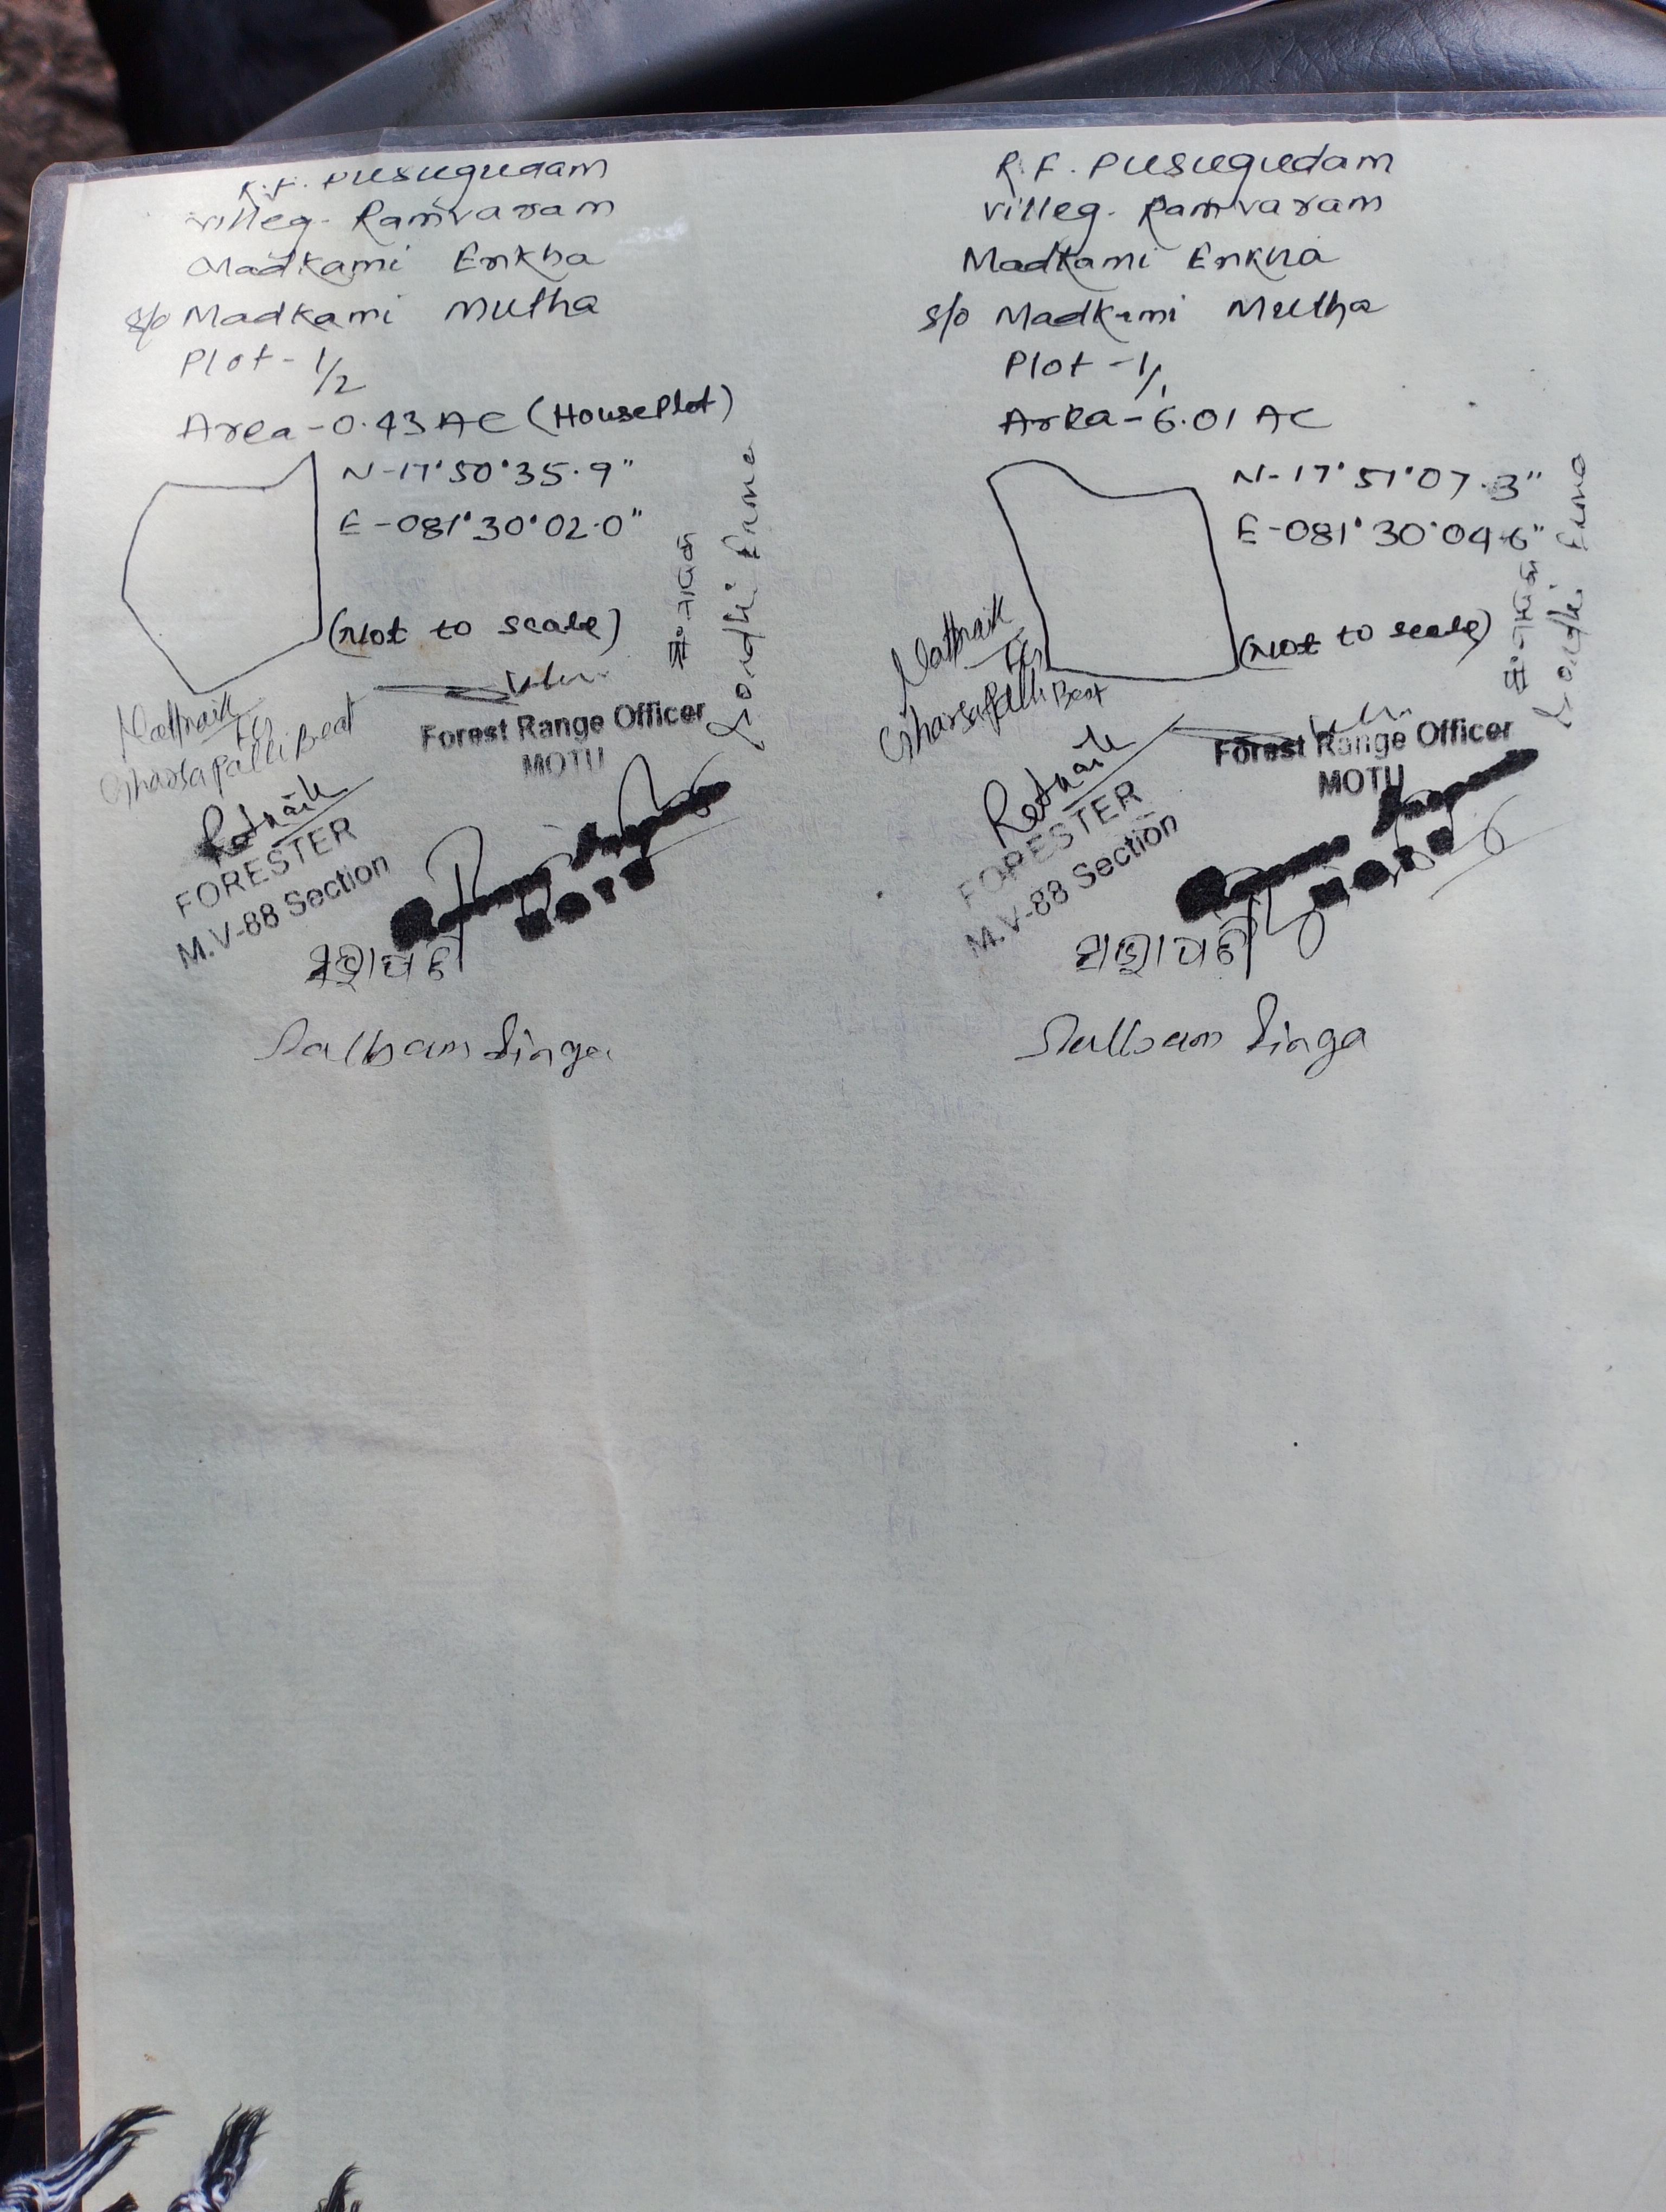 R.F. Pusugudam
villeg. Ramvaram
Madkami Enkha
s/o Madkami Mutha
Plot - 1/2
Area - 0.43 AC (House Plot)
N-17°50'35.9"
E-081°30'02.0"
(Not to scale)
Forest Range Officer
MOTU
Gharsapalli Beat
FORESTER
M.V-88 Section
ସଭାପତି
Salbam Singa
R.F. Pusugudam
villeg. Ramvaram
Madkami Enkha
s/o Madkami Mutha
Plot - 1/1
Area - 6.01 AC
N-17°51'07.3"
E-081°30'04.6"
(Not to scale)
Forest Range Officer
MOTU
Gharsapalli Beat
FORESTER
M.V-88 Section
ସଭାପତି
Salbam Singa